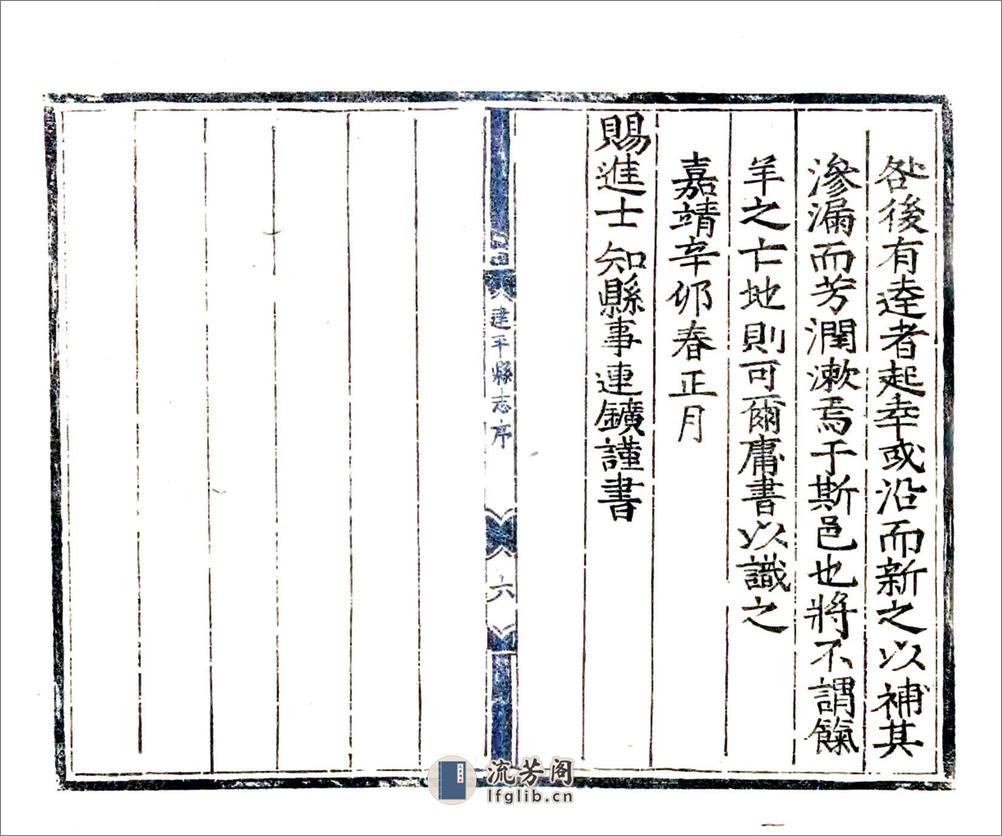 咎後有逹者起幸或沿而新之以補其
滲漏而芳潤漱焉于斯邑也將不謂餼
羊之亡地則可爾庸書以識之
嘉靖辛卯春正月
賜進士知縣事連鑛謹書
建平縣志序
六
流芳阁
lfglib.cn